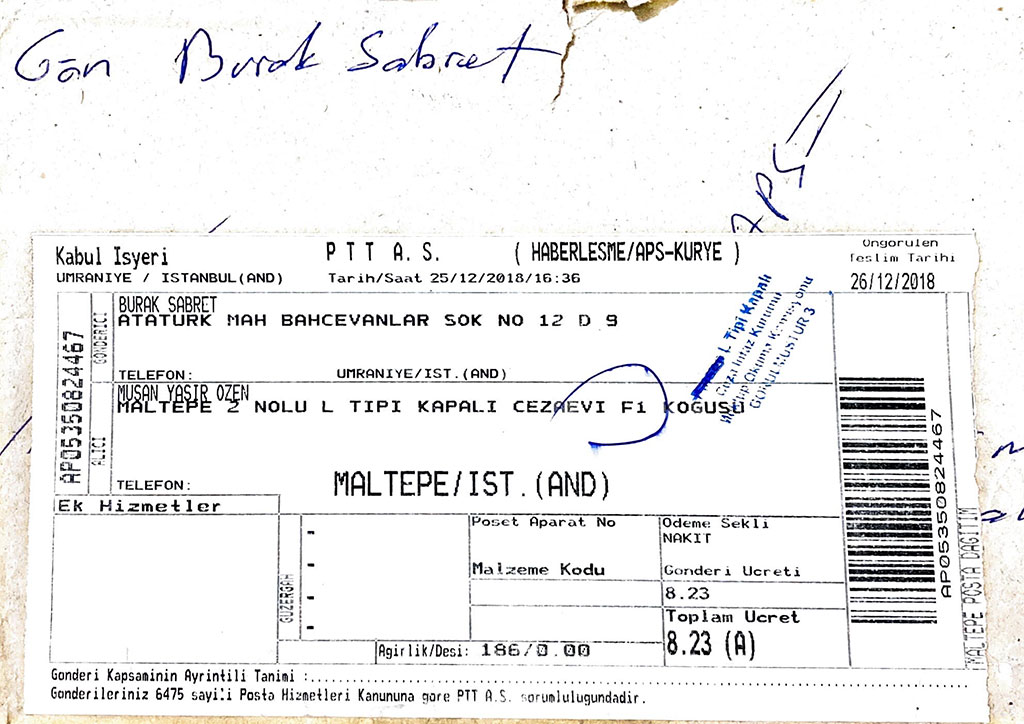 Gön Burak Sabret
APS
Kabul Isyeri
PTT A.S.
( HABERLESME/APS-KURYE )
Ongorulen
Teslim Tarihi
UMRANIYE / ISTANBUL(AND)
Tarih/Saat 25/12/2018/16:36
26/12/2018
AP05350824467
GONDERICI
BURAK SABRET
ATATURK MAH BAHCEVANLAR SOK NO 12 D 9
TELEFON:
UMRANIYE/IST.(AND)
ALICI
MUSAN YASIR OZEN
MALTEPE 2 NOLU L TIPI KAPALI CEZAEVI F1 KOGUSU
TELEFON:
MALTEPE/IST.(AND)
L Tipi Kapalı
Ceza İnfaz Kurumu
Mektup Okuma Komisyonu
GÖRÜLMÜŞTÜR 3
Ek Hizmetler
GUZERGAH
-
-
-
-
Poset Aparat No
Odeme Sekli
NAKIT
Malzeme Kodu
Gonderi Ucreti
8.23
Toplam Ucret
8.23 (A)
Agirlik/Desi: 186/0.00
AP05350824467
MALTEPE POSTA DAGITIM
Gonderi Kapsaminin Ayrintili Tanimi :
Gonderileriniz 6475 sayili Posta Hizmetleri Kanununa gore PTT A.S. sorumlulugundadir.